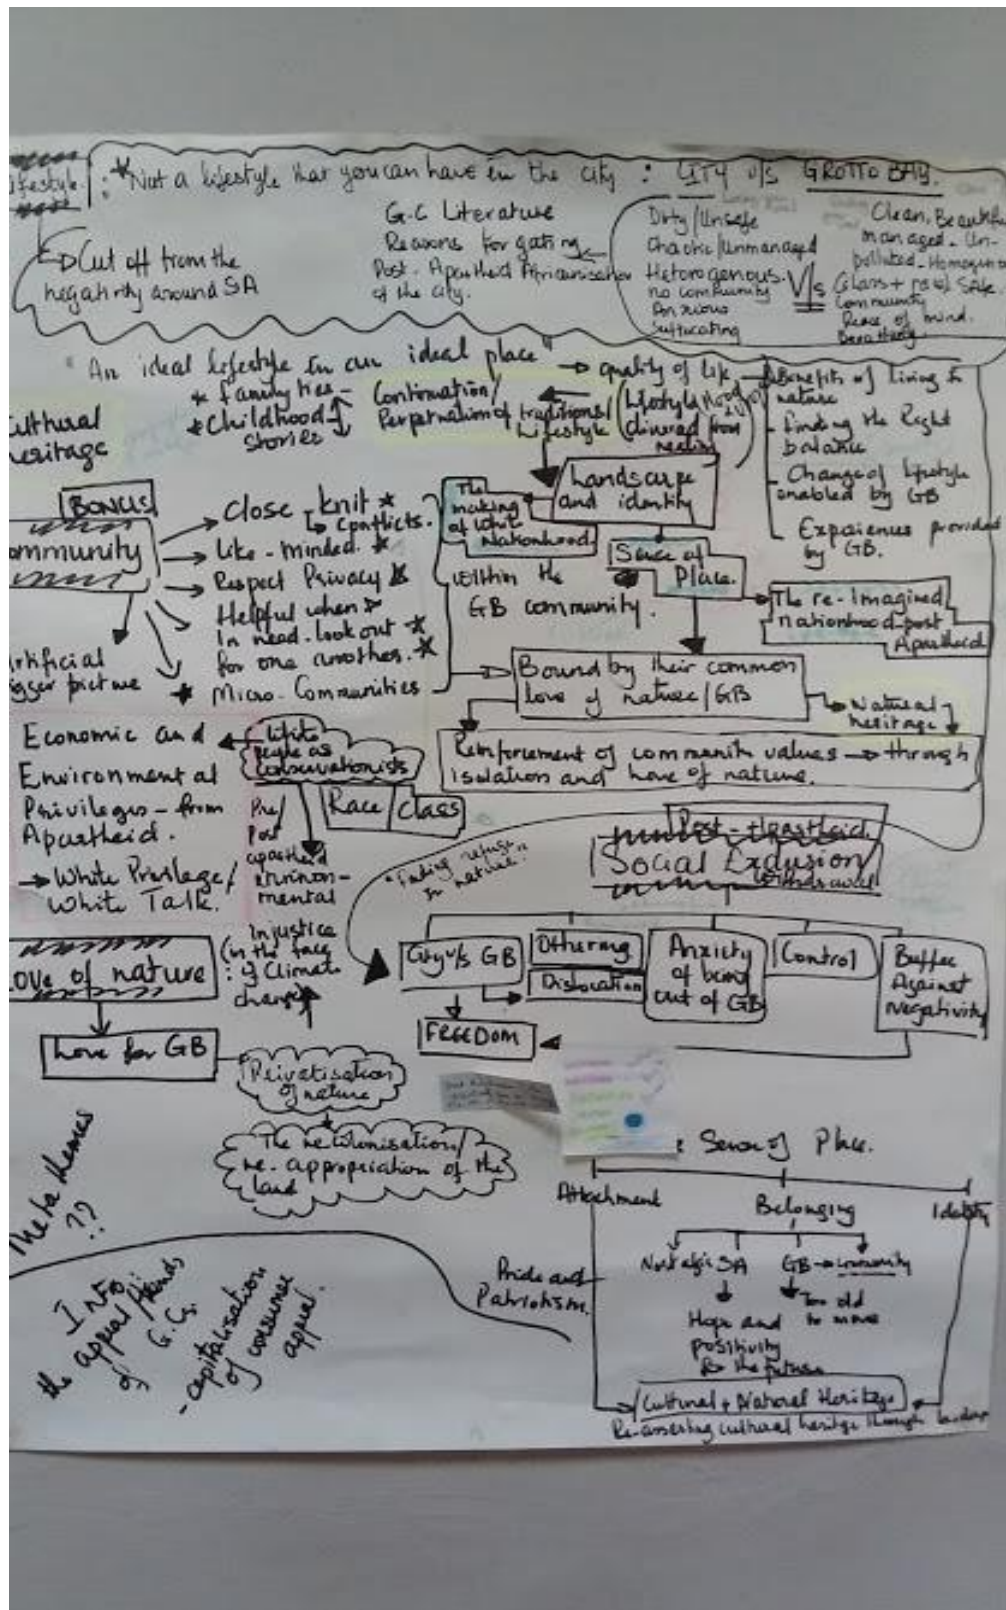 lifestyle. : * Not a lifestyle that you can have in the city : CITY v/s GROTTO BAY.
Cut off from the
negativity around SA
G.C Literature
Reasons for gating
Post-Apartheid Africanisation
of the city.
Dirty/Unsafe
Chaotic/Unmanaged
Heterogenous.
no community
Anxious
Suffocating
V/s
Clean, Beautiful
managed. Un-
polluted. Homogenou
Class + race/ Safe.
Community
Peace of mind.
Breathing.
"An ideal lifestyle in an ideal place"
* family ties -
* Childhood
stories
Continuation/
Perpetuation of traditions/
Lifestyle
quality of life
(Lifestyle
divorced from
reality)
- Benefits of living in
nature
- Finding the Right
balance
- Change of lifestyle
enabled by GB
Experiences provided
by GB.
ultural
eritage
BONUS
ommunity
close-knit *
conflicts.
like-minded. *
Respect Privacy *
Helpful when
in need. look out *
for one another. *
* Micro-Communities
rtificial
igger picture
The
making
of white
Nationhood.
Landscape
and identity
Within the
GB community.
Sense of
Place.
The re-Imagined
nationhood-post
Apartheid
Bound by their common
love of nature/GB
Natural
heritage
Reinforcement of community values → through
isolation and love of nature.
Economic and
Environmental
Privileges - from
Apartheid.
→ White Privilege/
White Talk.
White
people as
conservationists
Race/Class
Pre/
Post
apartheid
environ-
mental
Injustice
(in the face
of Climate
change)
"Finding refuge
in nature."
Post-Apartheid.
Social Exclusion/
Withdrawal
ove of nature
Love for GB
City v/s GB
Othering
Dislocation
Anxiety
of being
out of GB
Control
Buffer
Against
Negativity
FREEDOM
Privatisation
of nature
The recolonisation/
re-appropriation of the
land
Meta themes
??
Sense of Place.
Attachment
Belonging
Identity
Nostalgic SA
GB → community
Too old
to move
Hope and
positivity
for the future
Pride and
Patriotism.
Cultural + Natural Heritage
Re-asserting cultural heritage through
Into
the appeal/trends
of G.Cs
- capitalisation
of consumer
appeal.